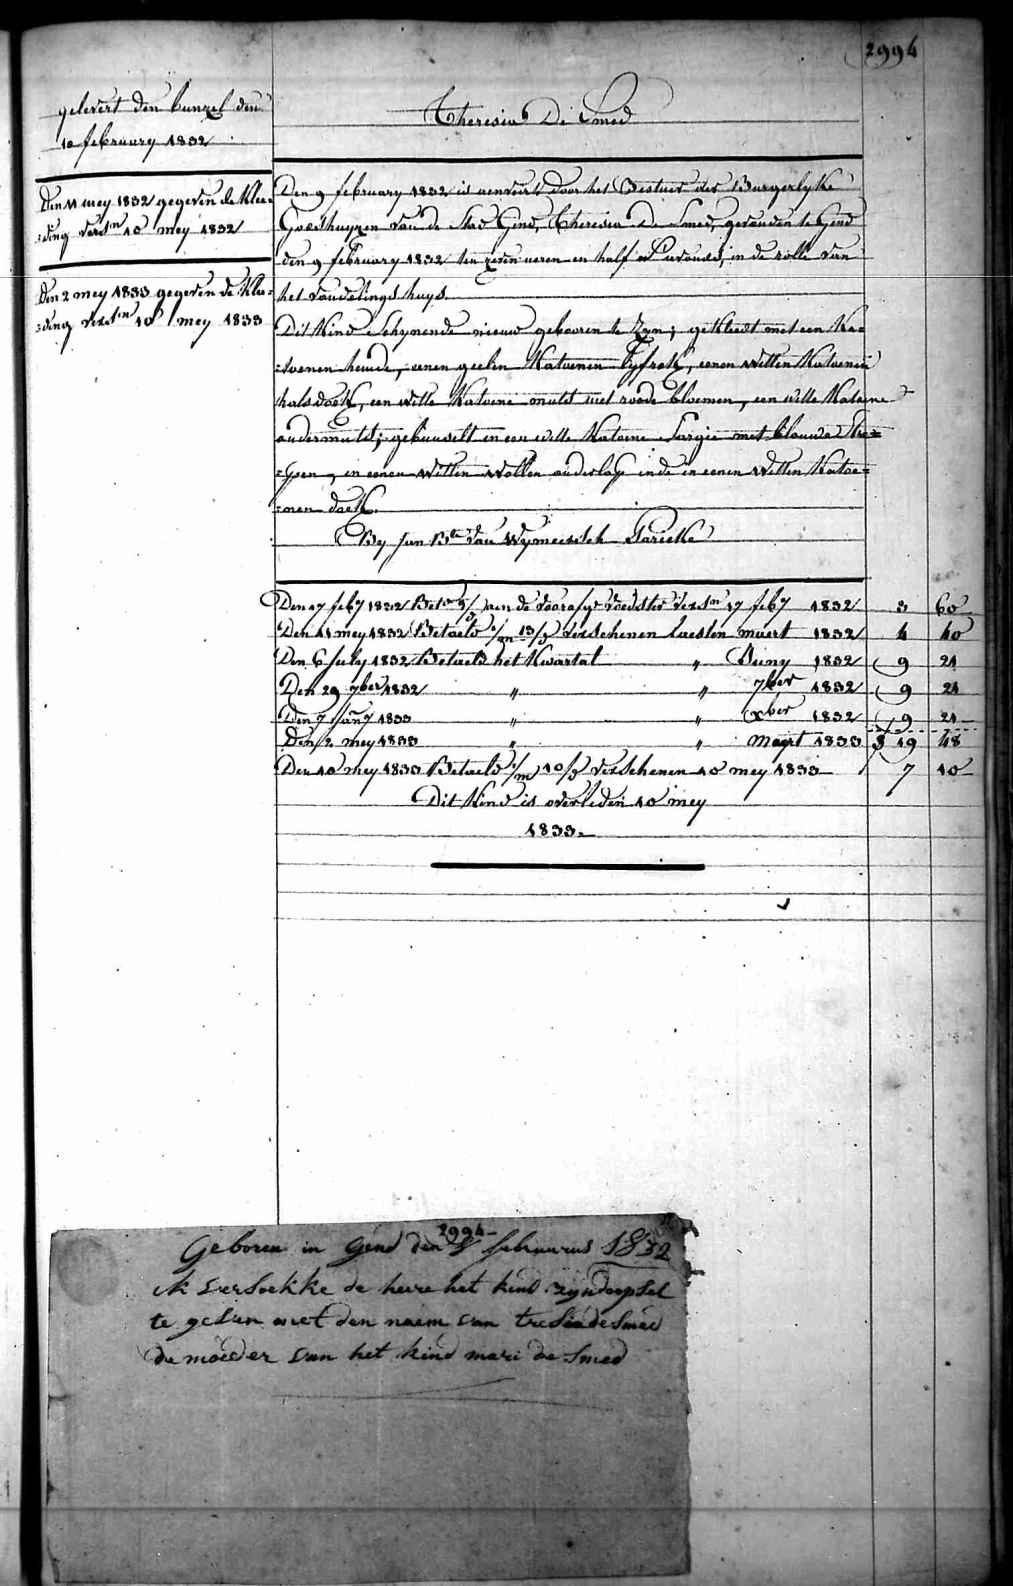 2994
gelevert den bunzel den
10 february 1832
Theresia De Smed
Den 11 mey 1832 gegeven de Klee=
=ding verst.en 10 mey 1832
Den 2 mey 1833 gegeven de Klee=
=ding verst.en 10 mey 1833
Den 9 february 1832 is aenveird door het Bestuer der Burgerlyke
Godshuyzen van de Stad Gend, Theresia De Smed, gevonden te Gend
den 9 february 1832 ten zeven ueren en half 's avonds, in de rolle van
het vondelings huys.
Dit Kind schynende nieuw gebooren te zyn; gekleedt met een Ka=
=toenen hemde, eenen geelen Katoenen lyfrok, eenen witten Katoenen
halsdoek, een witte Katoene mutst met roode bloemen, een witte Katoene
ondermutst; gebunselt in een witte Katoene Sargie met blauwe stre=
=pen, in eenen witten wollen onderlag ende in eenen witten Katoe=
=nen doek.
By Jan B.te Van Wymeersch
Den 17 feb.y 1832 Bet. aen de voorsz. voedster verst.en 17 feb.y 1832 3 60
Den 11 mey 1832 Betaeld 1/m 13/d verschenen laesten maert 1832 4 40
Den 6 July 1832 Betaeld het Kwartal " Juny 1832 9 21
Den 29 7ber 1832 " " 7ber 1832 9 21
Den 7 Jan.y 1833 " " Xber 1832 9 21
Den 2 mey 1833 " " Maert 1833 19 48
Den 10 mey 1833 Betaeld 1/m 10/d verschenen 10 mey 1833 7 10
Dit Kind is overleden 10 mey
1833.
2994
Geboren in Gend den 9 februarius 1832
ik versoekke de heere het kind zyn doopsel
te geven met den naem van tresia de Smed
de moeder van het kind mari de Smed